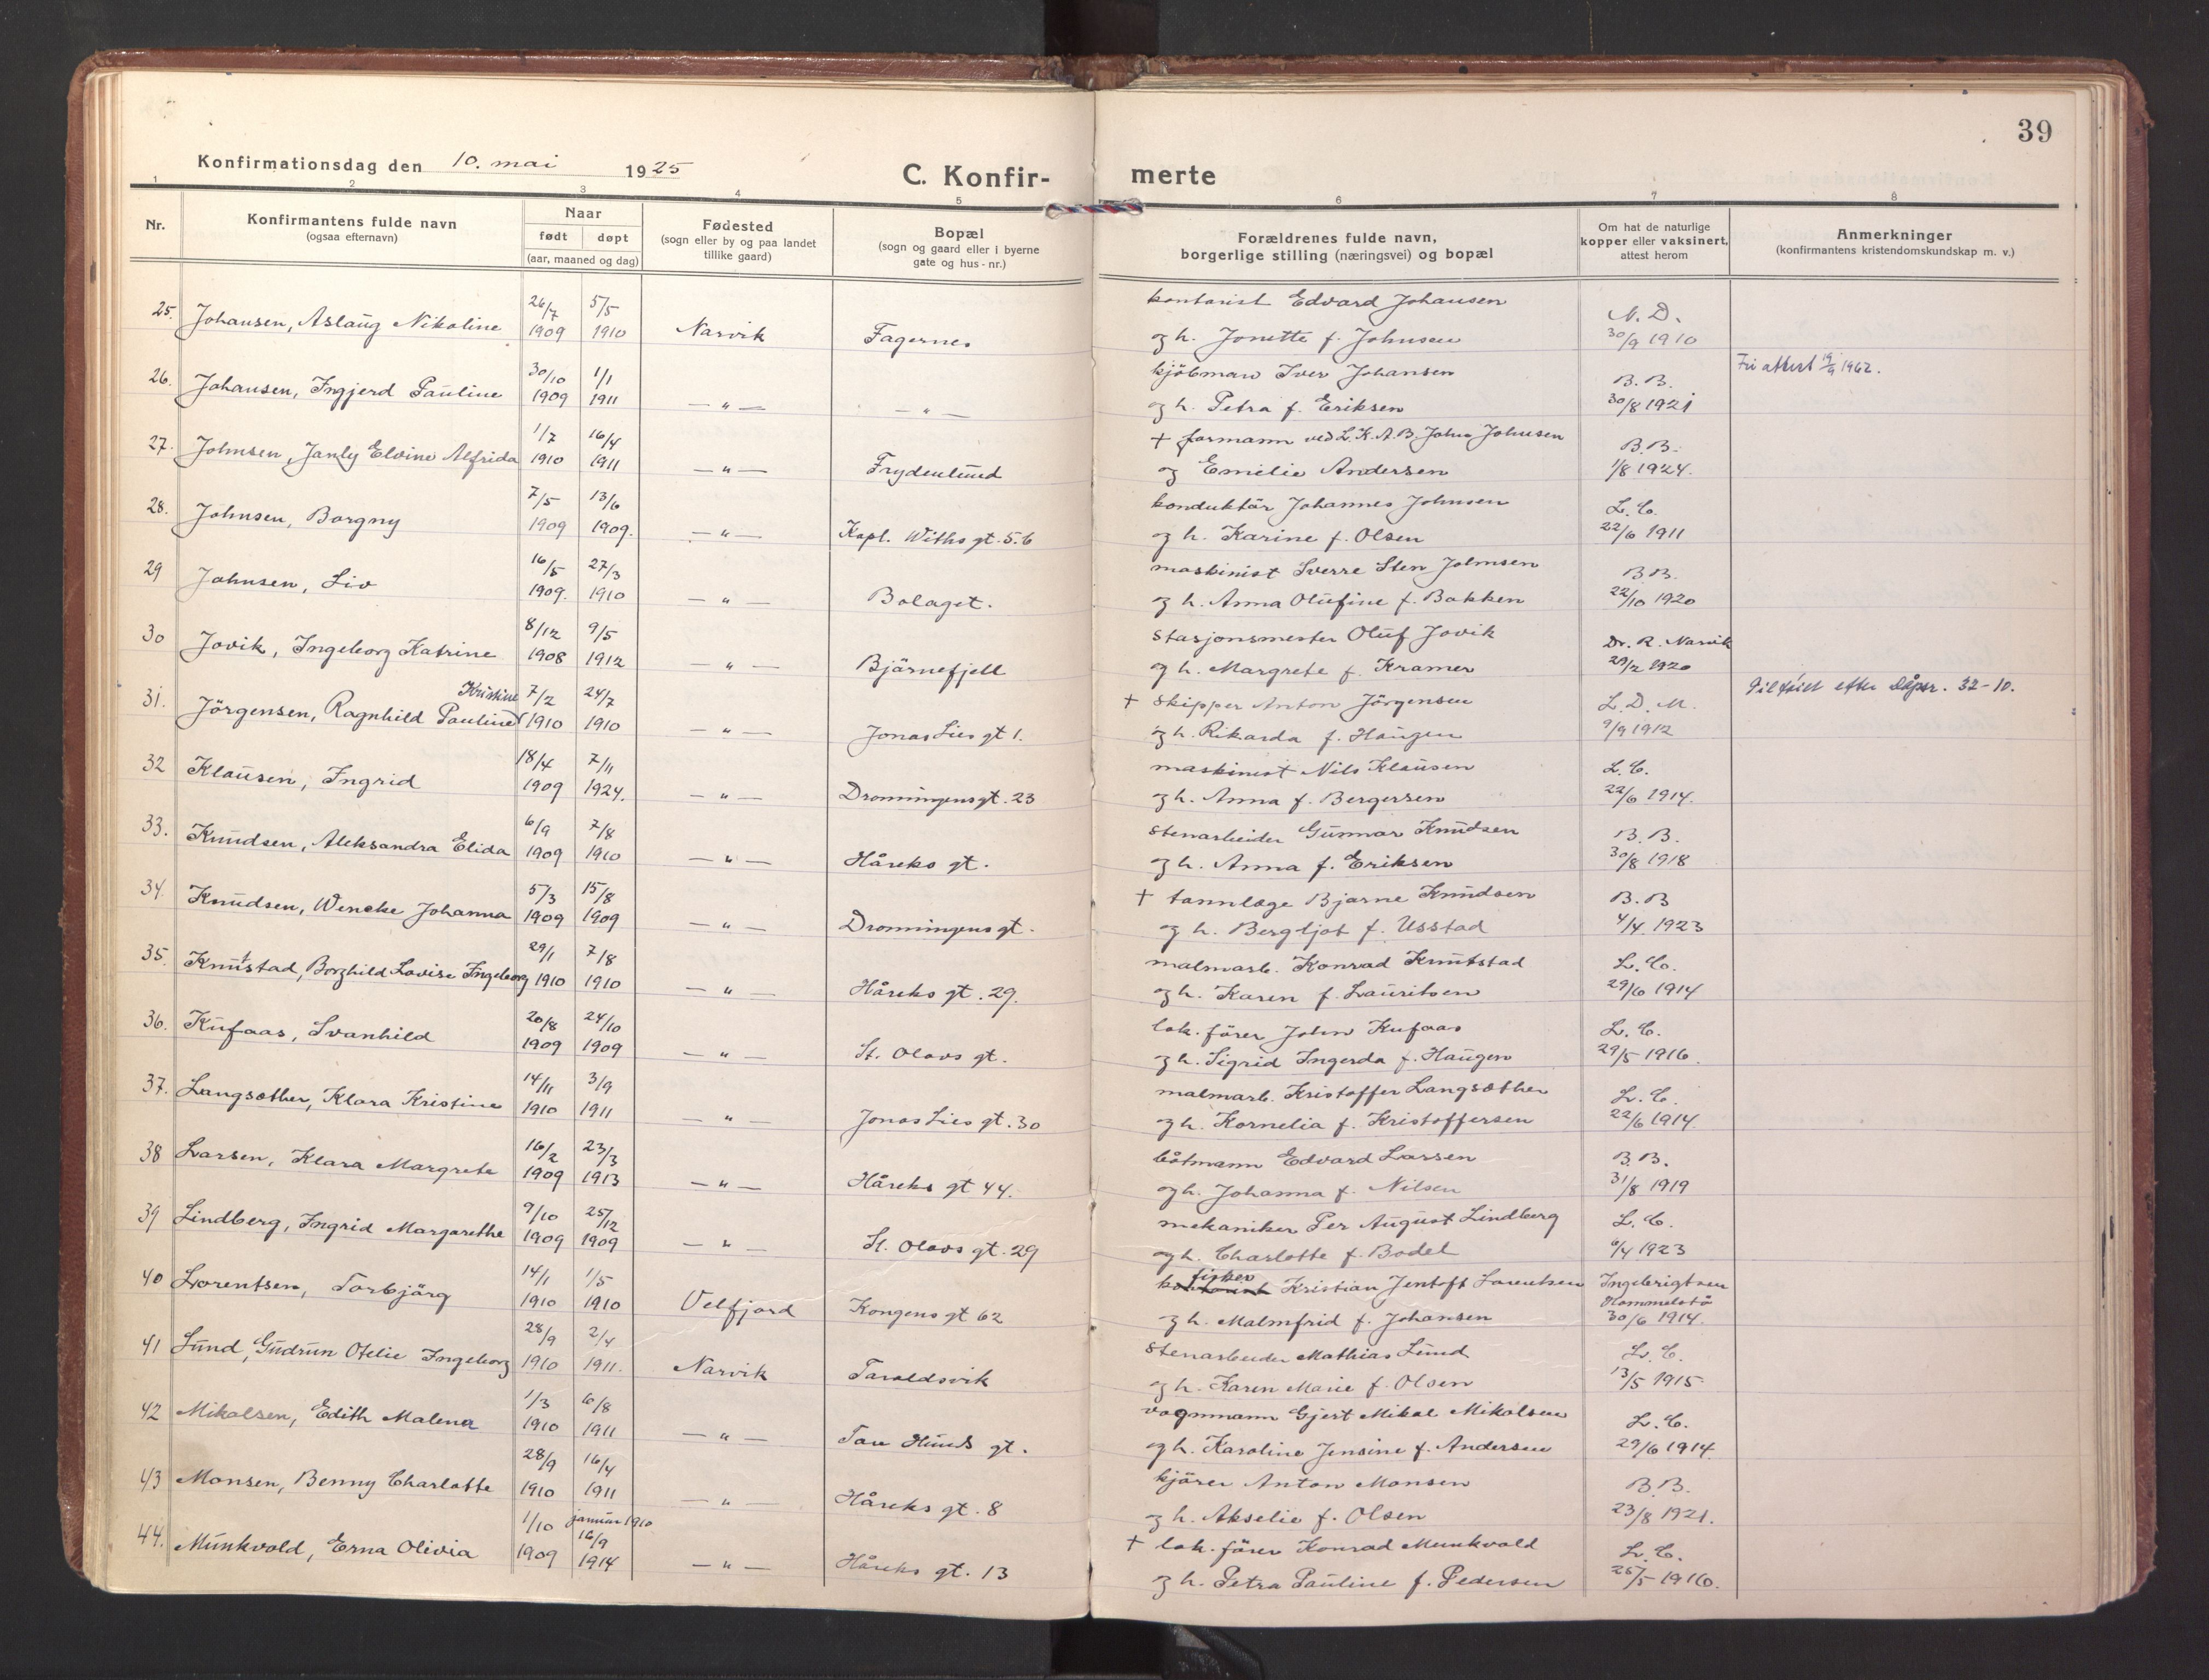 39
Konfirmationsdag den 10. mai 1925
C. Konfir- merte
1 2 3 4 5 6 7 8
Nr.
Konfirmantens fulde navn
(ogsaa efternavn)
Naar
født døpt
(aar, maaned og dag)
Fødested
(sogn eller by og paa landet
tillike gaard)
Bopæl
(sogn og gaard eller i byerne
gate og hus-nr.)
Forældrenes fulde navn,
borgerlige stilling (næringsvei) og bopæl
Om hat de naturlige
kopper eller vaksinert,
attest herom
Anmerkninger
(konfirmantens kristendomskundskap m. v.)
25. 26/7 5/5 kontorist Edvard Johansen N. D.
Johansen, Aslaug Nikoline 1909 1910 Narvik Fagernes og h. Jonette f. Johnsen 30/9 1910
26. 30/10 1/1 kjöbman Iver Johansen B. B. Fri attest 19/9 1962.
Johansen, Ingjerd Pauline 1909 1911 — " — — " — og h. Petra f. Eriksen 30/8 1921
27. 1/7 16/4 + formann ved L.K.A.B. Johnsen B.B.
Johnsen, Janly Elvine Alfrida 1910 1911 — " — Frydenlund og Emelie Andersen 1/8 1924.
28. 7/5 13/6 konduktör Johannes Johnsen L. C.
Johnsen, Borgny 1909 1909. — " — Kapl. Withs gt. 5.6 og h. Karine f. Olsen 22/6 1911
29 16/5 27/3 maskinist Sverre Sten Johnsen B.B.
Johnsen, Liv 1909. 1910 — " — Bolaget. og h. Anna Olufine f. Bakken 22/10 1920
30 8/12 9/5 stasjonsmester Oluf Jovik Dr. R. Narvik
Jovik, Ingeborg Katrine 1908 1912 — " — Bjärnefjell og h. Margrete f. Kramer 29/2 1920
31. Kristine 7/2 24/7 + skipper Anton Jörgensen L. D. M. Tilföiet efter dåpsr. 32-10.
Jörgensen, Ragnhild Pauline 1910 1910 — " — Jonas Lies gt 1. og h. Rikarda f. Haugen 9/9 1912
32 18/4 7/11 maskinist Nils Klausen L. C.
Klausen, Ingrid 1909 1924. — " — Dronningensgt. 23 og h. Anna f. Bergersen 22/6 1914.
33. 6/9 7/8 stenarbeider Gunnar Knudsen B. B.
Knudsen, Aleksandra Elida 1909 1910 — " — Håreks gt. og h. Anna f. Eriksen 30/8 1918
34. 5/3 15/8 + tannlæge Bjarne Knudsen B. B
Knudsen, Wencke Johanna 1909 1909 — " — Dronningens gt. og h. Bergljot f. Usstad 4/4. 1923
35. 29/1 7/8 malmarb. Konrad Knutstad L. C.
Knutstad, Borghild Lovise Ingeborg 1910 1910 — " — Håreks gt. 29. og h. Karen f. Lauritsen 29/6 1914
36. 20/8 24/10 lok. förer John Kufaas L. C.
Kufaas, Svanhild 1909 1909 — " — St. Olavs gt. og h. Sigrid Ingerda f. Haugen 29/5 1916.
37. 14/11 3/9 malmarb. Kristoffer Langsæther L. C.
Langsæther, Klara Kristine 1910 1911 — " — Jonas Lies gt. 30 og h. Kornelia f. Kristoffersen 22/6 1914.
38 16/2 23/3 båtmann Edvard Larsen B. B.
Larsen, Klara Margrete 1909 1913 — " — Håreks gt 44. og h. Johanna f. Nilsen 31/8 1919
39 9/10 25/12 mekaniker Per August Lindberg L. C.
Lindberg, Ingrid Margarethe 1909 1909 — " — St. Olavs gt. 29 og h. Charlotte f. Bodel 6/4 1923
40 14/1 1/5 fisker Kristian Jentoft Lorentsen Ingebrigtsen
Lorentsen, Torbjörg 1910 1910 Velfjord Kongens gt 62 og h. Malmfrid f. Johansen Hommelstö 30/6 1914.
41 28/9 2/4 stenarbeider Mathias Lund L. C.
Lund, Gudrun Otelie Ingeborg 1910 1911. Narvik Taraldsvik og h. Karen Marie f. Olsen 13/5 1915.
42 1/3 6/8 vognmann Gjert Mikal Mikalsen L. C.
Mikalsen, Edith Malena 1910 1911 — " — gt. og h. Karoline Jensine f. Andersen 29/6 1914.
43 28/9 16/4 kjörer Anton Monsen B. B.
Monsen, Benny Charlotte 1910 1911 — " — Håreks gt. 8 og h. Akselie f. Olsen 23/8 1921.
44. 1/10 januar 1910 16/9 + lok. förer Konrad Munkvold L. C.
Munkvold, Erna Olivia 1909 1914 — " — Håreks gt. 13 og h. Petra Pauline f. Pedersen 25/5 1916.